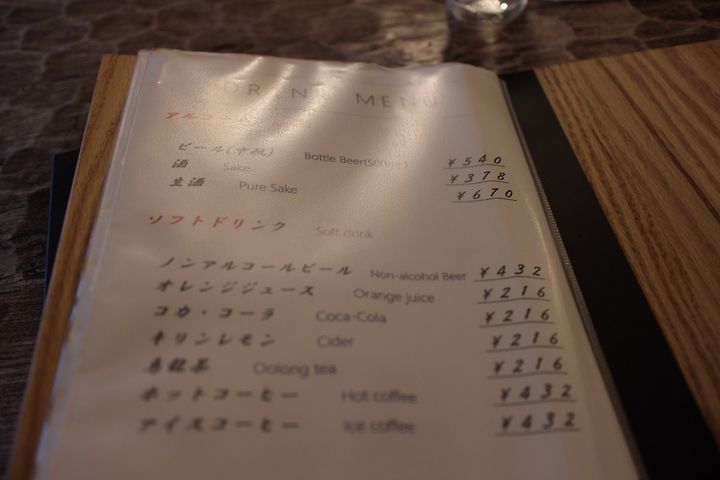 DRINK MENU
アルコール
ビール(中瓶) Bottle Beer(500ml) ¥540
酒 Sake ¥378
生酒 Pure Sake ¥670
ソフトドリンク Soft drink
ノンアルコールビール Non-alcohol Beer ¥432
オレンジジュース Orange juice ¥216
コカ・コーラ Coca-Cola ¥216
キリンレモン Cider ¥216
烏龍茶 Oolong tea ¥216
ホットコーヒー Hot coffee ¥432
アイスコーヒー Ice coffee ¥432